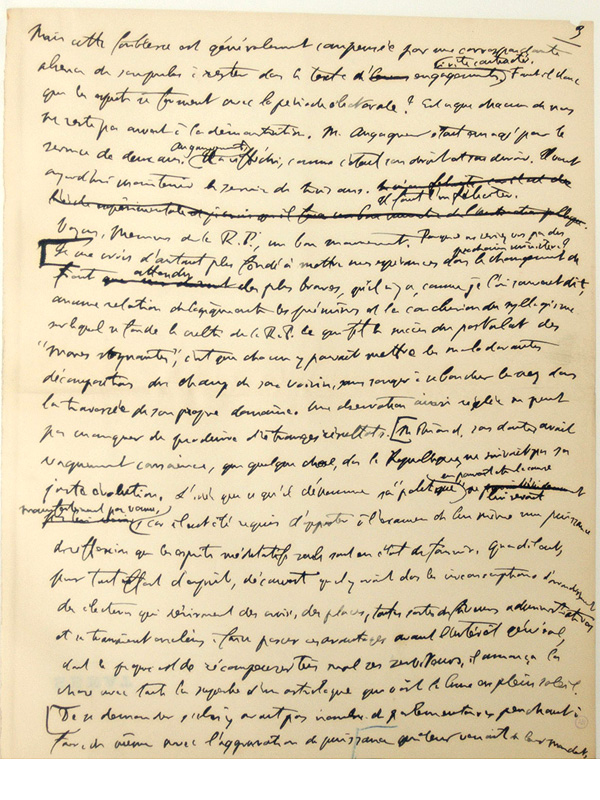 3
Mais cette faiblesse est généralement compensée par une correspondante
absence de scrupules à rester dans le texte d' engagements. Faut-il donc
que les esprits se forment avec la période électorale ? Est-ce que chacun de nous
ne reste pas avant à la démonstration. M. Augagneur était engagé pour le
service de deux ans. Il a réfléchi, comme c'était son droit et son devoir. Il veut
aujourd'hui maintenir le service de trois ans.
il faut l'en féliciter.
Voyons, Messieurs de la R.P., un bon mouvement. Pourquoi ne seriez vous pas des
Je me crois d'autant plus fondé à mettre mes espérances dans le changement de
front des plus braves, qu'il n'y a, comme je l'ai souvent dit,
aucune relation de logique entre les prémisses et la conclusion du syllogisme
sur lequel se fonde le culte de la R.P. Ce qui fit le succès du postulat des
"mares stagnantes", c'est que chacun y pouvait mettre les malodorantes
décompositions du champ de son voisin, sans songer à se boucher le nez dans
la traversée de son propre domaine. Une observation ainsi réglée ne peut
pas manquer de produire d'étranges résultats. M. Briand, sans doute, avait
vaguement conscience, que quelque chose, dans la République, ne suivait pas sa
juste évolution. L'idée que ce qu'il dénomme sa "politique"
car il eut été requis d'apporter à l'examen de lui même une puissance
de réflexion que les esprits méditatifs seuls sont en état de fournir. Que dit-on,
pour tout effort d'esprit, découvert qu'il y avait dans les circonscriptions d'arrondissement
des électeurs qui désiraient des croix, des places, toutes sortes de faveurs administratives
et se trouvaient enclins à faire passer ces avantages avant l'intérêt général,
dont le propre est de récompenser très mal ses serviteurs, il annonça la
chose avec toute la superbe d'un astrologue qui voit la lune en plein soleil.
De se demander s'il n'y avait pas nombre de parlementaires penchant à
faire de même avec l'aggravation de puissance qui leur venait de leur mandat,